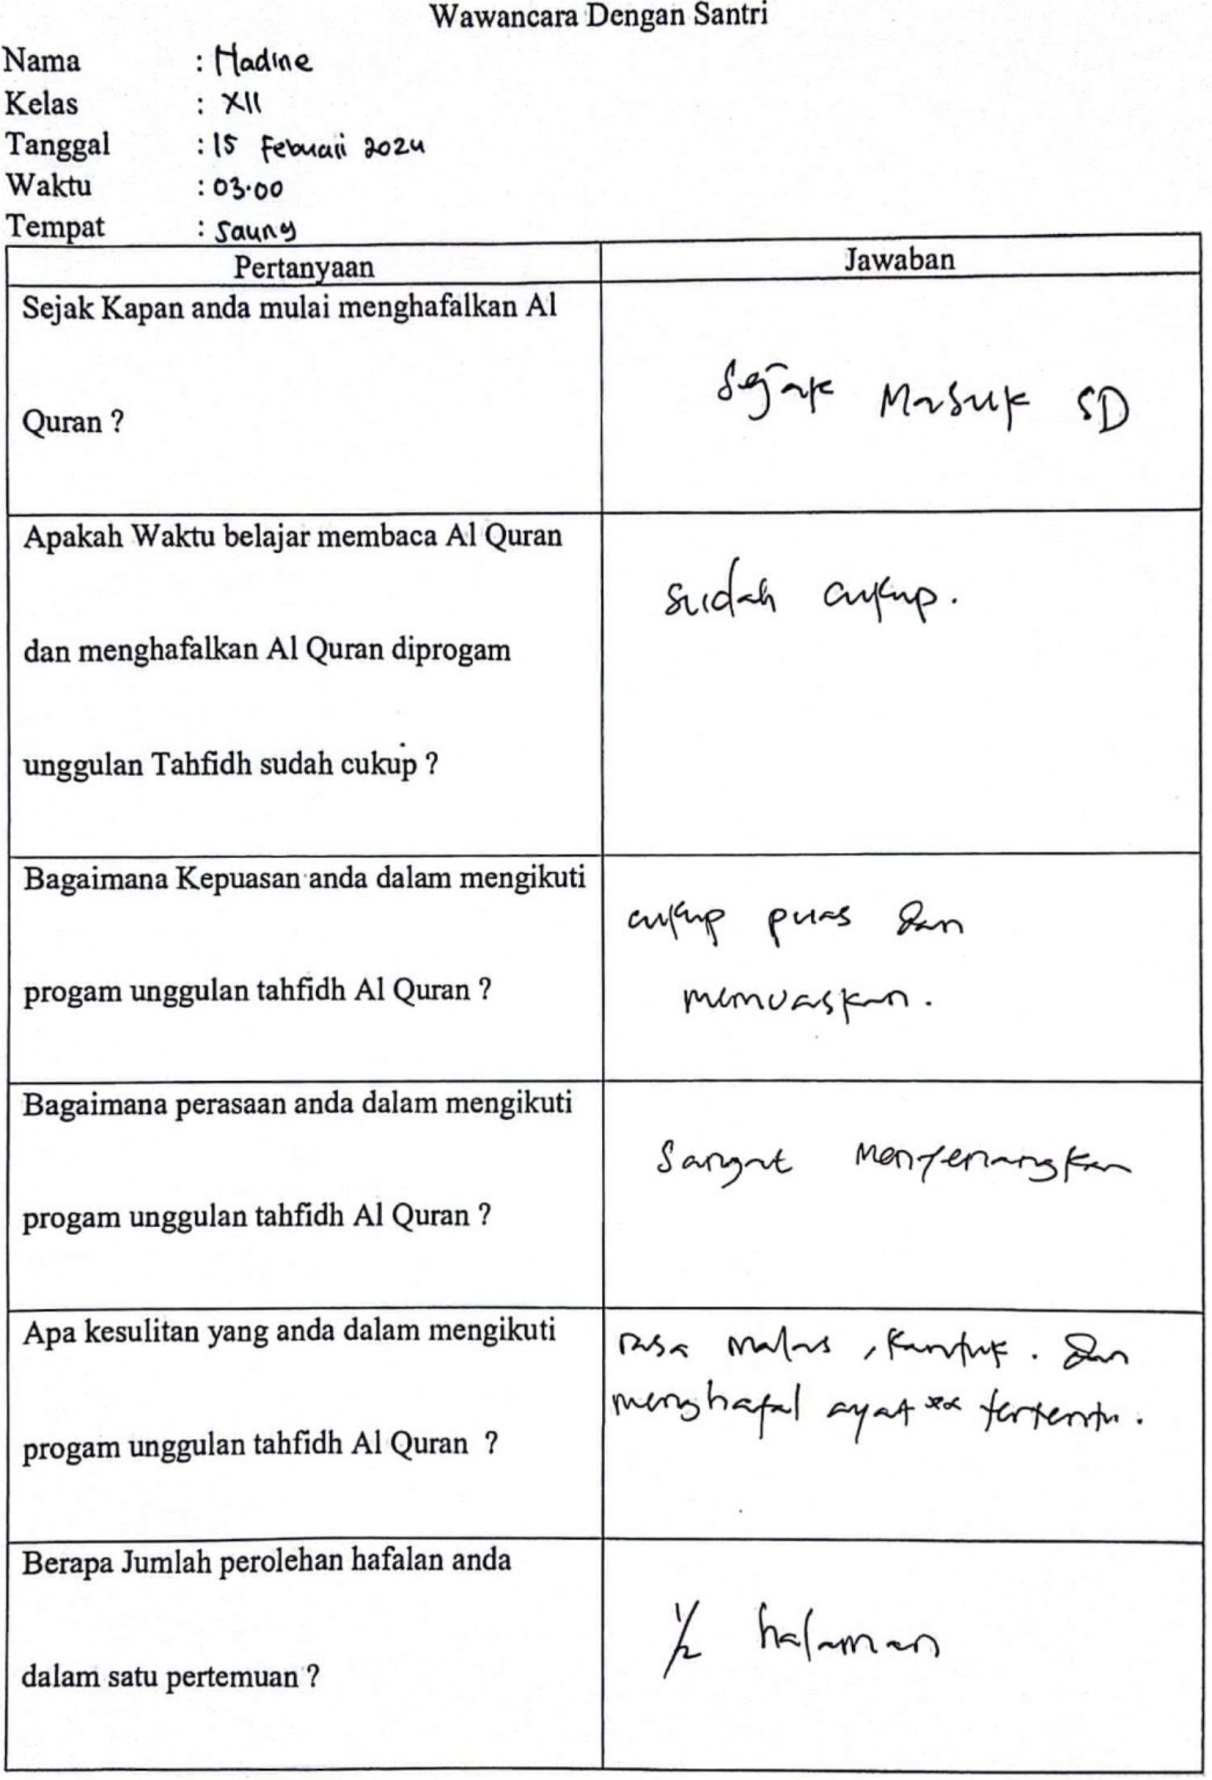 Wawancara Dengan Santri
Nama : Hadine
Kelas : XII
Tanggal : 15 Februari 2024
Waktu : 03.00
Tempat : Saung
Pertanyaan Jawaban
Sejak Kapan anda mulai menghafalkan Al
Quran ?
Sejak Masuk SD
Apakah Waktu belajar membaca Al Quran
dan menghafalkan Al Quran diprogam
unggulan Tahfidh sudah cukup ?
sudah cukup.
Bagaimana Kepuasan anda dalam mengikuti
progam unggulan tahfidh Al Quran ?
cukup puas dan
memuaskan.
Bagaimana perasaan anda dalam mengikuti
progam unggulan tahfidh Al Quran ?
Sangat menyenangkan
Apa kesulitan yang anda dalam mengikuti
progam unggulan tahfidh Al Quran ?
rasa malas , kantuk . dan
menghafal ayat tertentu .
Berapa Jumlah perolehan hafalan anda
dalam satu pertemuan ?
1/2 halaman